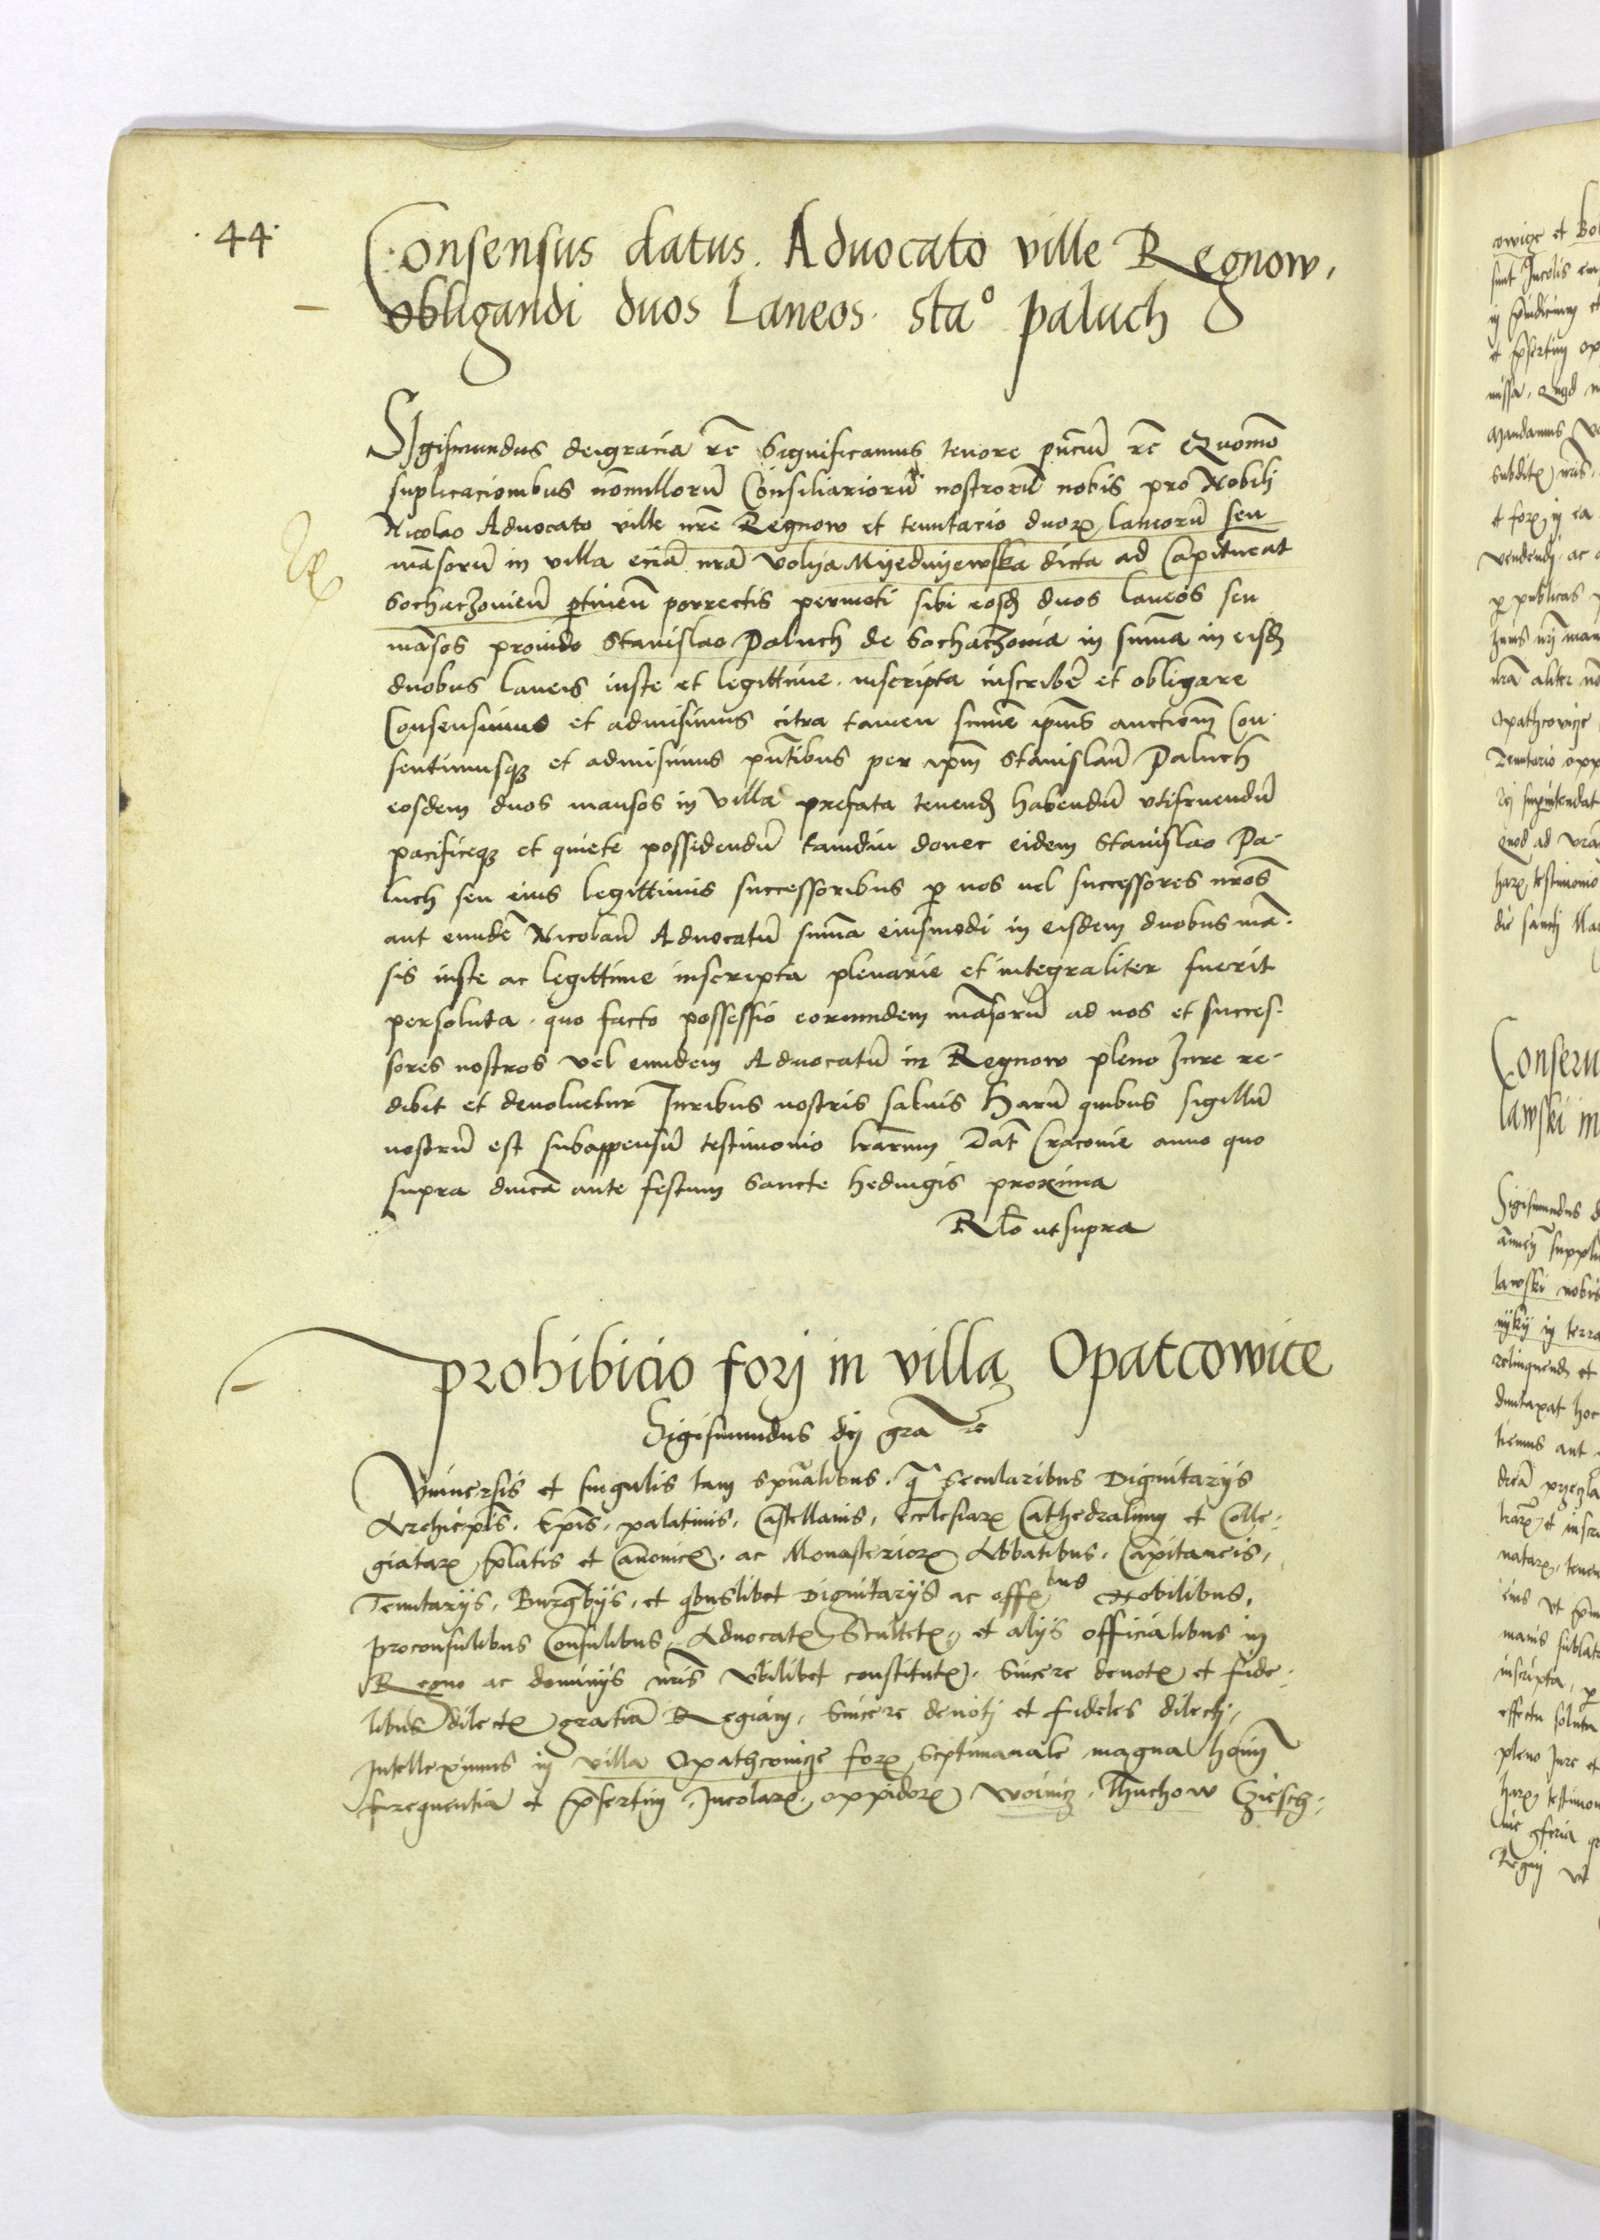 44
Consensus datus Advocato ville Regnow,
obligandi duos Laneos sta° paluch
Sigismundus dei gracia rc Significamus tenore pntium rc Quomo
suplicacionibus nonnullorum Consiliariorum nostrorum nobis pro Nobili
Nicolao Advocato ville nre Regnow et tenutario duorum laneorum seu
mansorum in villa eciam nra Volya Myednyewska dicta ad Capitneat
Sochaczovien ptinen porrectis permoti sibi eosd duos laneos seu
mansos provido Stanislao Paluch de Sochaczovia in summa in eisd
duobus laneis iuste et legittime inscripta inscribere et obligare
Consensimus et admisimus citra tamen summe ipius auctionem Con-
sentimusque et admisimus pntibus per ipm Stanislaum Paluch
eosdem duos mansos in villa prefata tenend habendum utifruendum
pacificeque et quiete possidendum tamdiu donec eidem Stanislao Pa-
luch seu eius legittimis successoribus p nos vel successores nros
aut eundem Nicolaum Advocatum summa eiusmodi in eisdem duobus man-
sis iuste ac legittime inscripta plenarie et integraliter fuerit
persoluta. quo facto possessio eorumdem mansorum ad nos et succes-
sores nostros vel eundem Advocatum in Regnow pleno Iure re-
dibit et devoluetur Iuribus nostris salvis Harum quibus sigillum
nostrum est subappensum testimonio lrarum Dat Cracovie anno quo
supra dnica ante festum Sancte Hedvigis proxima
Rlo ut supra
Prohibicio fori in villa Opatcowice
Sigismundus dei gra rc
Universis et singulis tam spualibus. q secularibus Dignitariis
Archiepis. Epis. palatinis. Castellanis. Ecclesiarum Cathedralium et Colle-
giatarum platis et Canonicis. ac Monasteriorum Abbatibus. Capitaneis.
Tenutariis. Burgrabys. et quibuslibet Dignitariis ac offibus Nobilibus.
Proconsulibus Consulibus Advocatis Scultetis et aliis officialibus in
Regno ac dominiis nris Ubilibet constitutis. Sincere devotis et fide-
libus dilectis gratiam Regiam. Sincere devoti et fideles dilecti.
Intelleximus in villa Opathcowicze forum Septimanale magna hoim
frequentia et presertim Incolarum oppidorum Woinicz. Thuchow Cziesch-